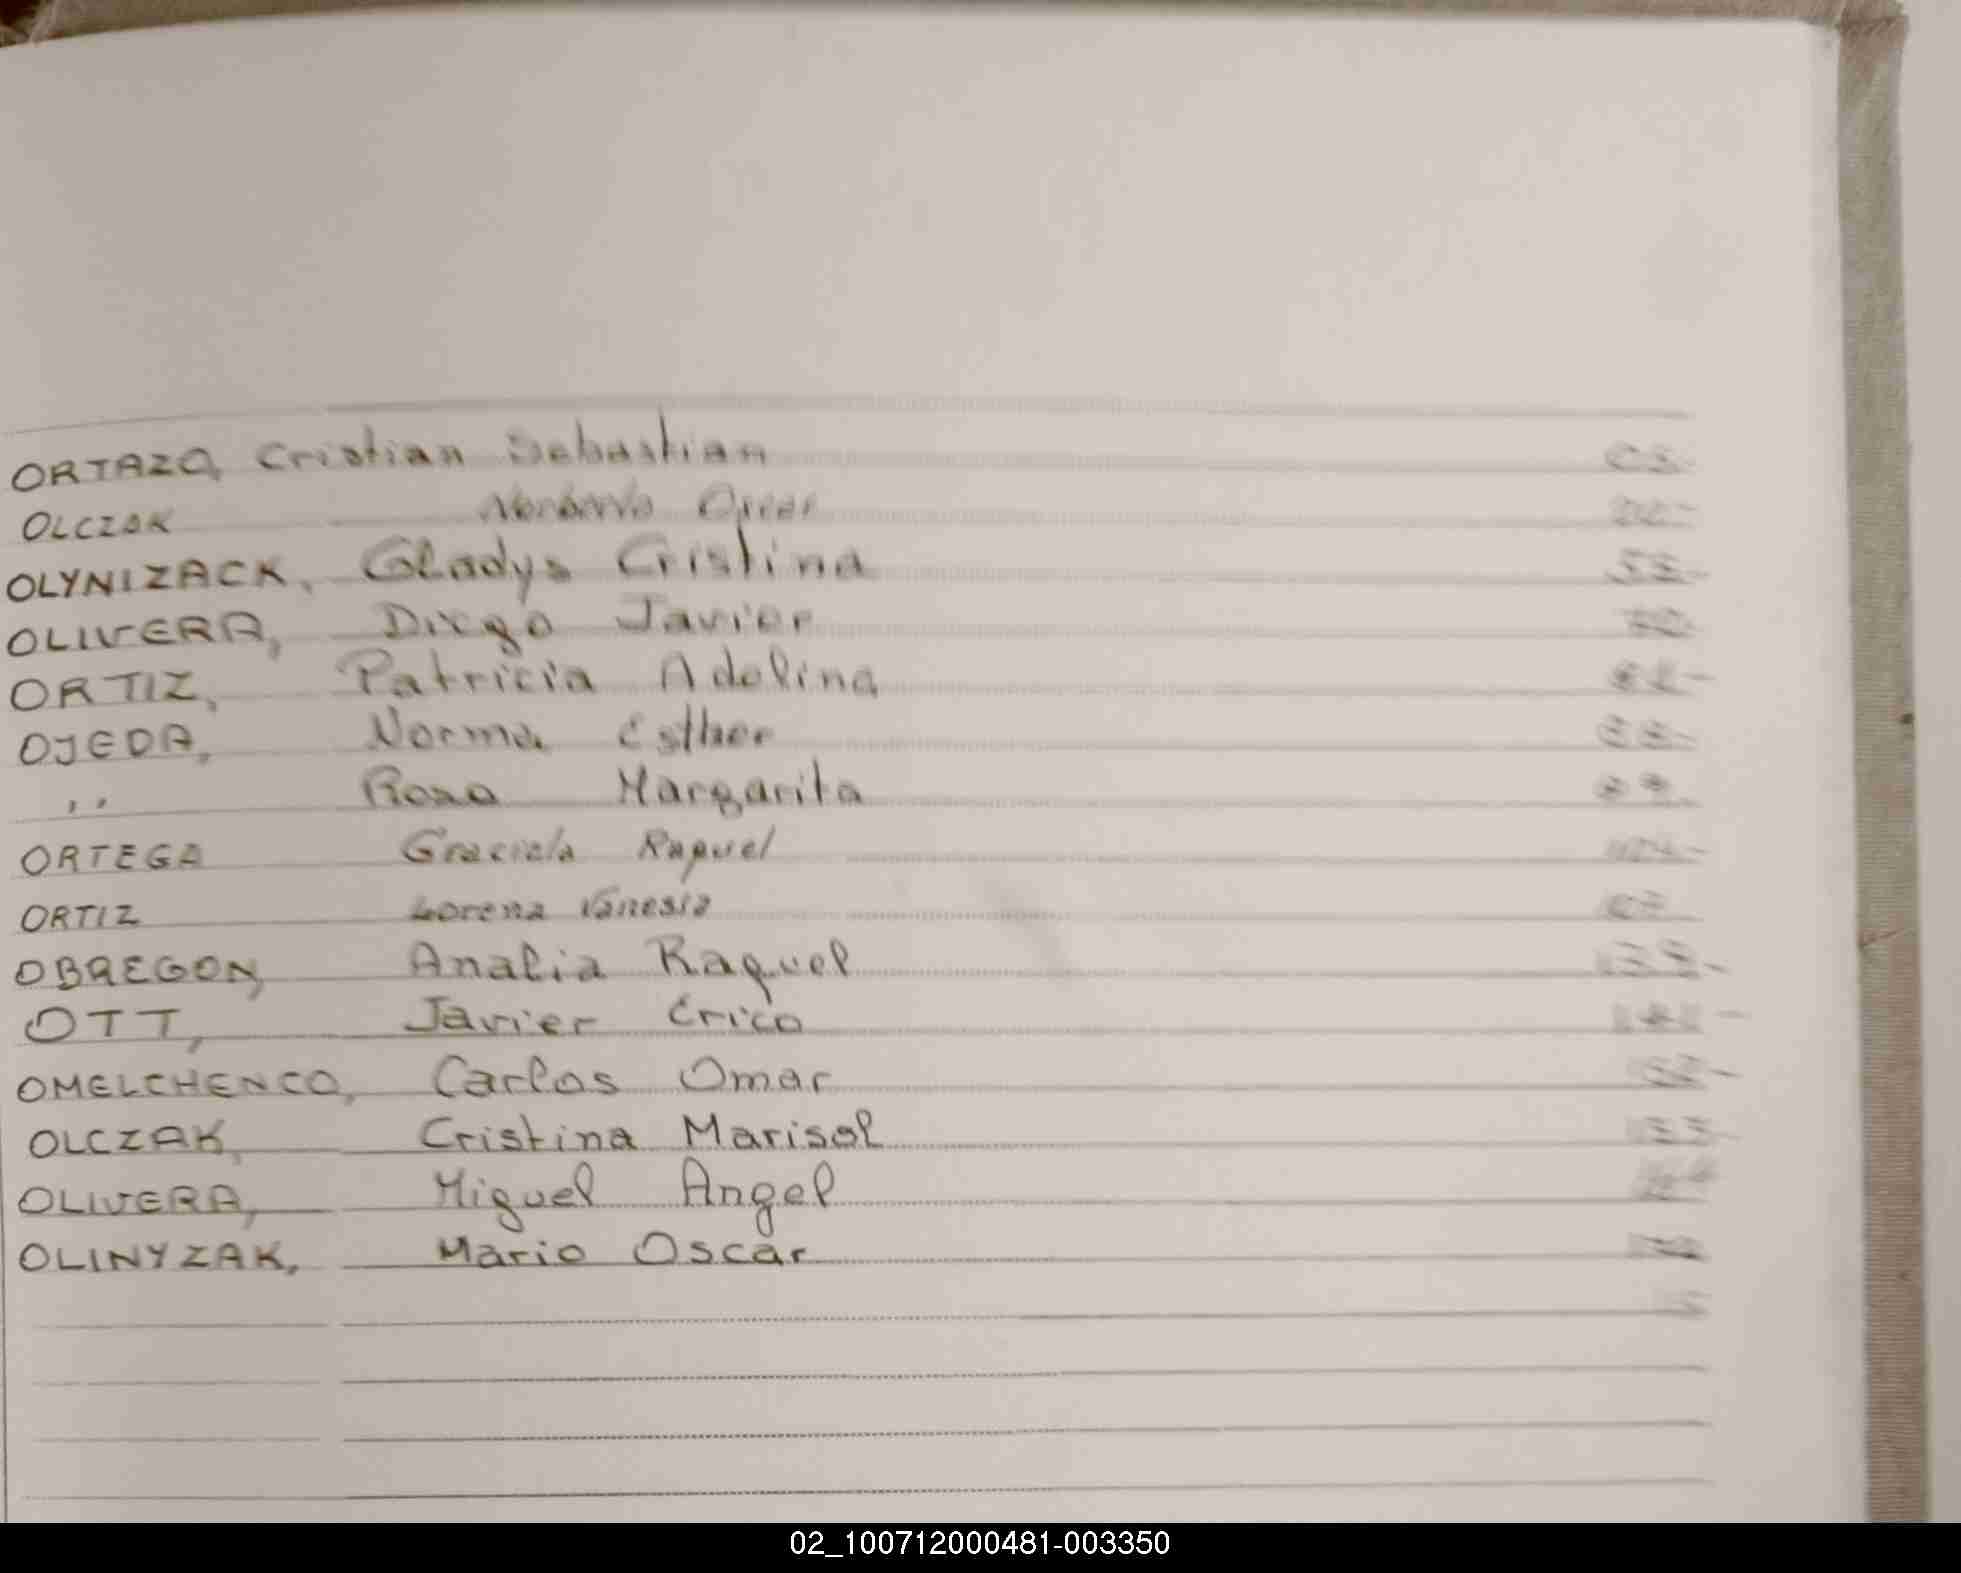 ORTAZO, Cristian Sebastian
OLCZAK Norberto Oscar
OLYNIZACK, Gladys Cristina
OLIVERA, Diego Javier
ORTIZ, Patricia Adelina
OJEDA, Norma Esther
,, Rosa Margarita
ORTEGA Graciela Raquel
ORTIZ Lorena Vanesia
OBREGON, Analia Raquel
OTT, Javier Erico
OMELCHENCO, Carlos Omar
OLCZAK, Cristina Marisol
OLIVERA, Miguel Angel
OLINYZAK, Mario Oscar
02_100712000481-003350